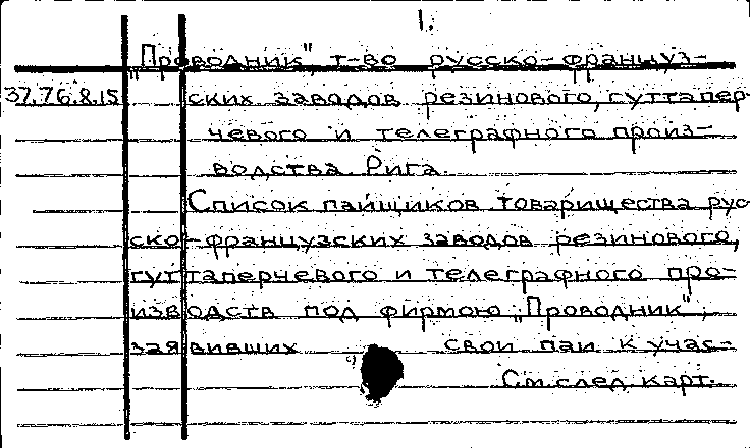 1.
„Проводник", т-во русско-француз-
37.76.8.15 ских заводов резинового, гуттапер-
чевого и телеграфного произ-
водства Рига.
Список пайщиков товарищества рус
ско-французских заводов резинового,
гуттаперчевого и телеграфного про-
изводств под фирмою „Проводник",
заявивших свои паи к учас-
См. след. карт.